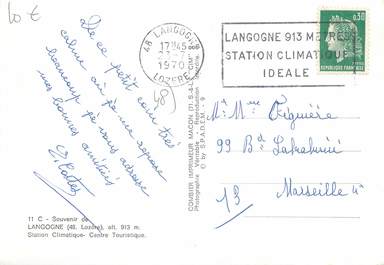 10 €
48 LANGOGNE
17H45
1970
LOZERE
LANGOGNE 913 METRES
STATION CLIMATIQUE
IDEALE
0,30
REPUBLIQUE FRANCAISE
De ce petit coin très
calme où je me repose
beaucoup je vous adresse
mes bonnes amitiés
COMBIER IMPRIMEUR MACON (71.S.-&-L.) "CIM"
Photographie Véritable - Reproduction Interdite
© by S.P.A.D.E.M. - 9
Mr Mme Figuière
99 Bd
13 Marseille 4e
11 C - Souvenir de
LANGOGNE (48. Lozère), alt. 913 m.
Station Climatique- Centre Touristique.